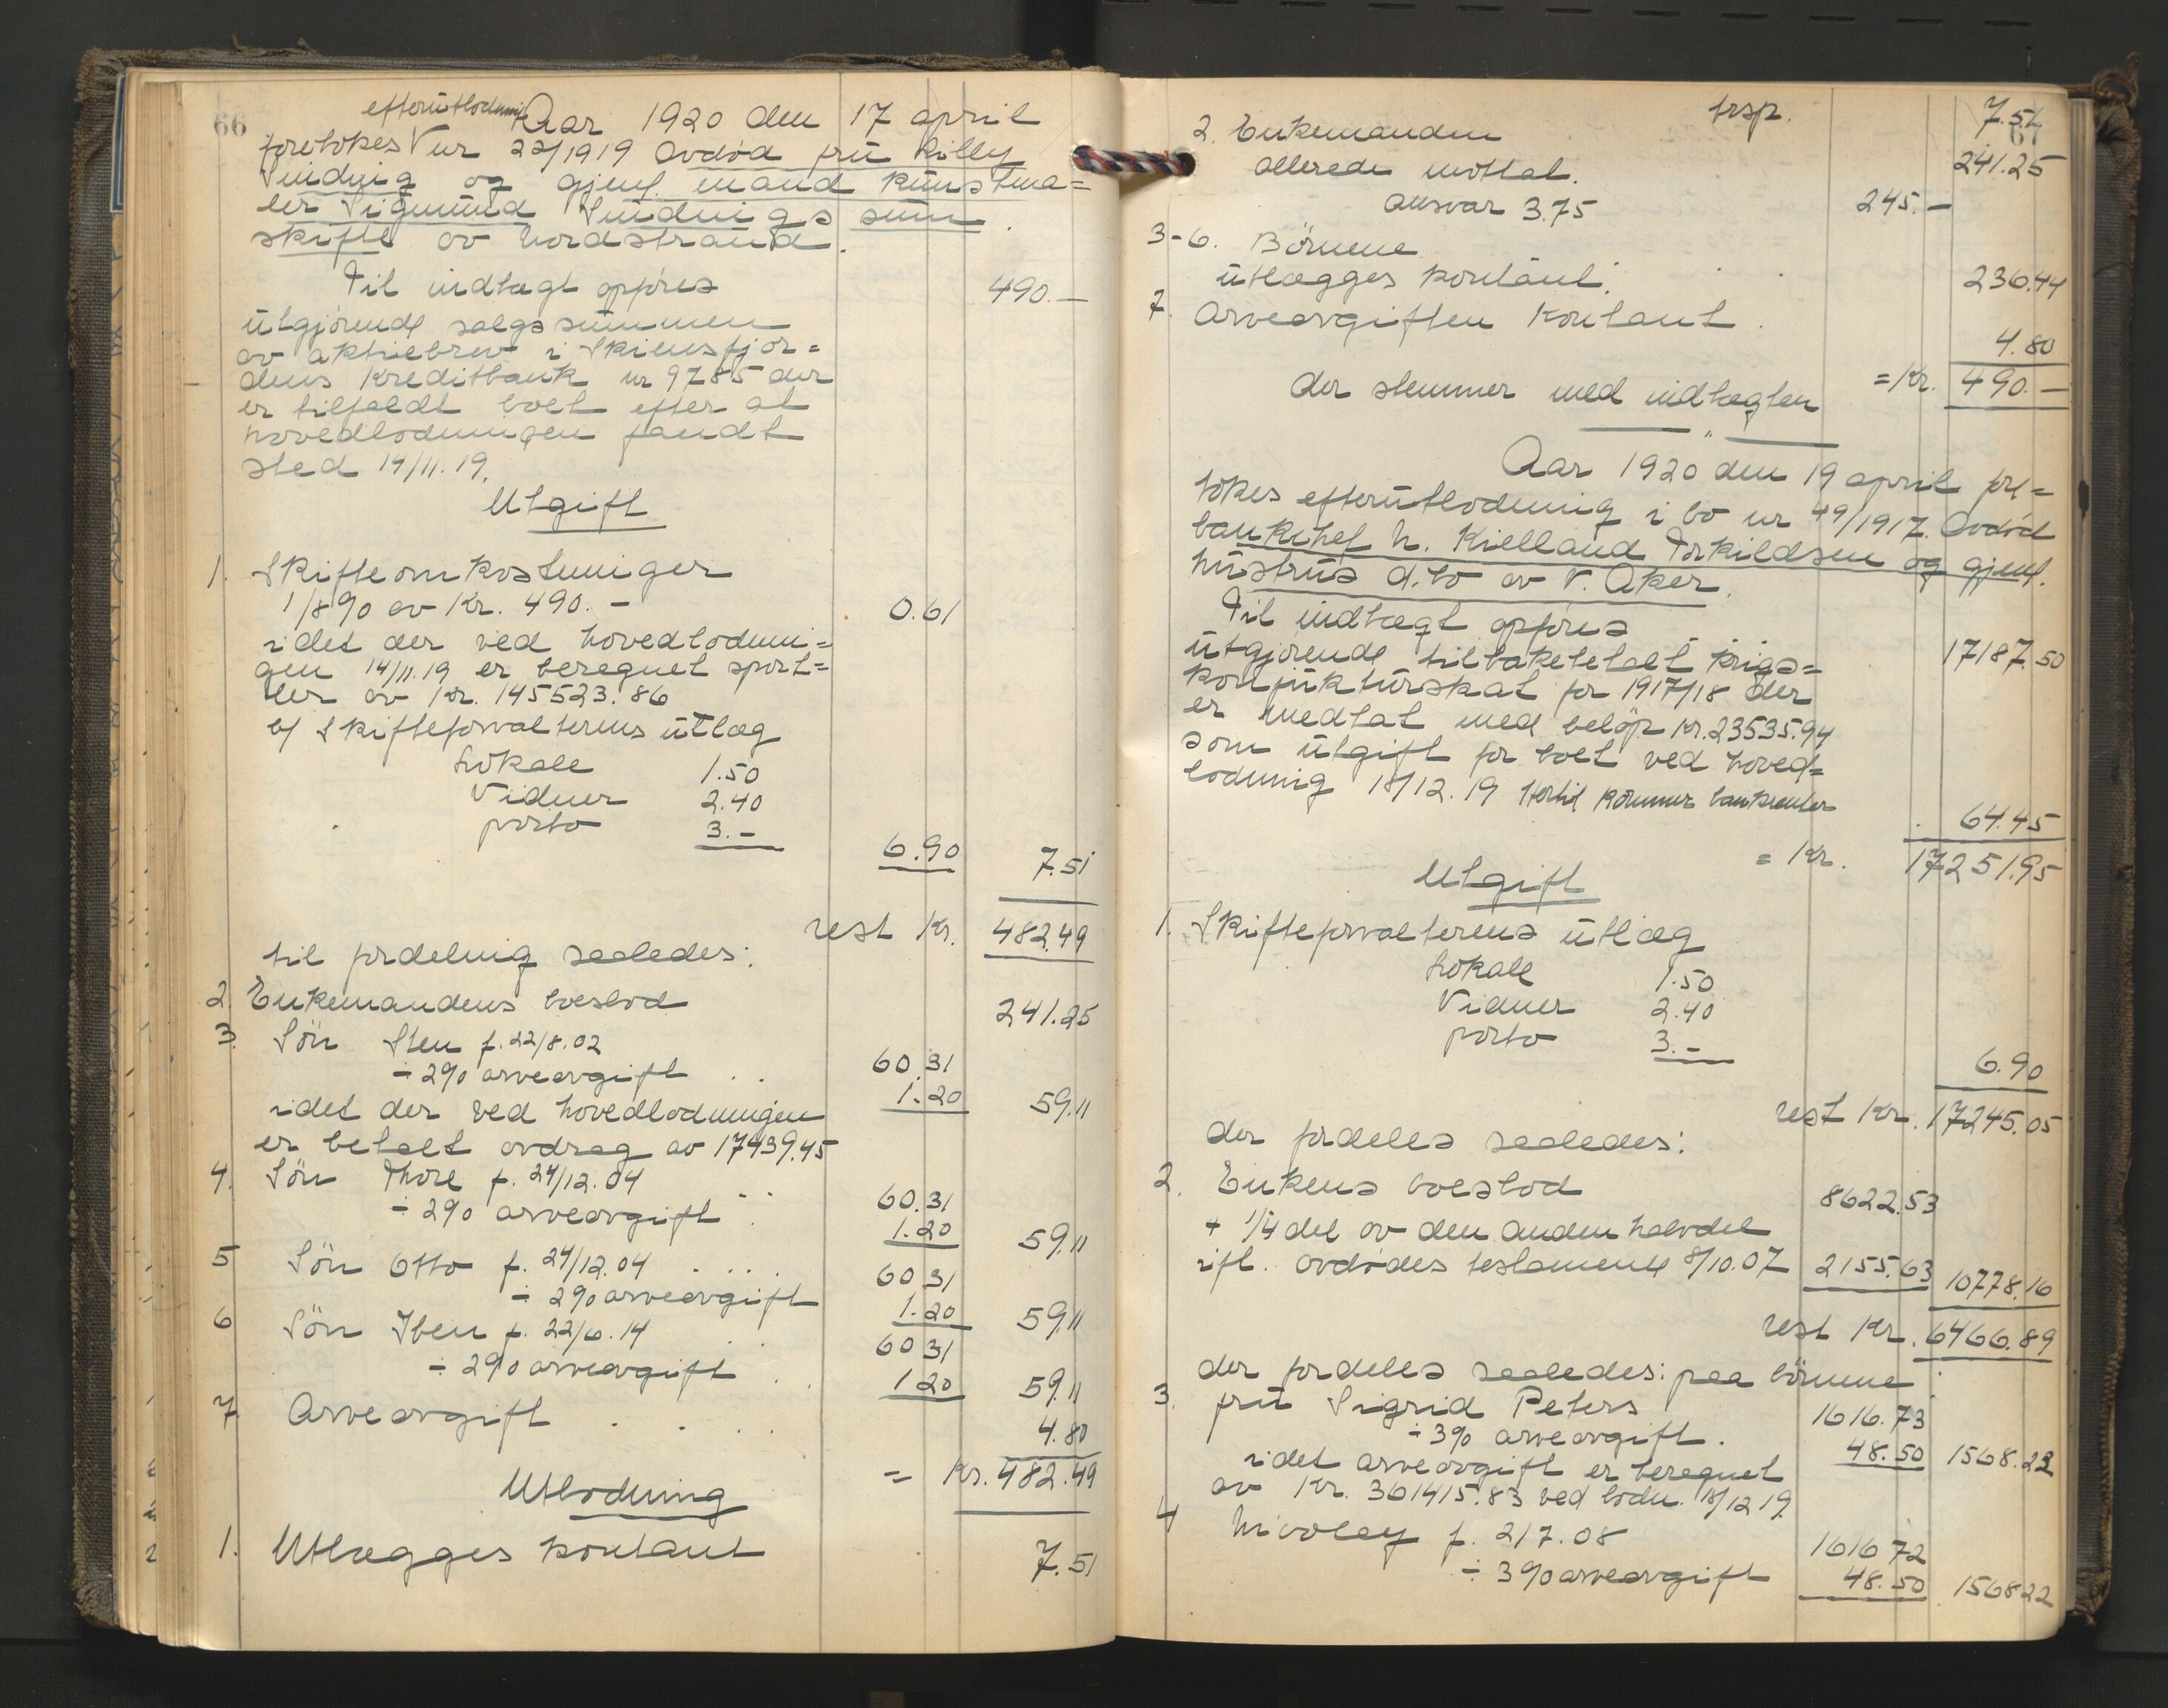 66
efterutlodning Aar 1920 den 17 april
foretokes V nr 22/1919 Avdød fru Lilly
Sinding og gjenl. mand kunstma=
ler Sigmund Sindings sam
skifte av Nordstrand.
Til indtægt opføres 490.—
utgjørende salgssummen
av aktiebrev i Skiensfjor=
dens Kreditbank nr 9785 der
er tilfaldt boet efter at
hovedlodningen fandt
sted 14/11.19.
Utgift
1. Skifteomkostninger
1/8 % av Kr. 490.— 0.61
idet der ved hovedlodnin=
gen 14/11.19 er beregnet sport=
ler av Kr. 145523.86
b/ Skifteforvalterens utlæg
Lokale 1.50
Vidner 2.40
porto 3.—
6.90 7.51
rest Kr. 482.49
til fordeling saaledes:
2. Enkemandens boeslod 241.25
3. Søn Sten f. 22/8.02 60.31
÷ 2% arveavgift . . 1.20 59.11
idet der ved hovedlodningen
er betalt avdrag av 17439.45
4. Søn Thore f. 24/12.04 60.31
÷ 2% arveavgift . 1.20 59.11
5 Søn Otto f. 24/12.04 . . . . 60 31
÷ 2% arveavgift 1.20 59.11
6 Søn Iben f. 22/6.14 . 60 31
÷ 2% arveavgift . 1 20 59.11
7. Arveavgift . . . 4.80
= Kr. 482.49
Utlodning
1. Utlægges kontant 7.51
67
trsp. 7.51
2. Enkemanden 241.25
allerede mottat.
ansvar 3.75 245.—
3-6. Børnene
utlægges kontant. . . 236.44
7. Arveavgiften kontant . 4.80
der stemmer med indtægten = Kr. 490.—
"
Aar 1920 den 19 april fore=
tokes efterutlodning i bo nr 49/1917. Avdød
bankchef N. Kielland Torkildsen og gjenl.
hustrus d.bo av V. Aker.
Til indtægt opføres 17187.50
utgjørende tilbakebetalt krigs=
konjunkturskat for 1917/18 der
er medtat med beløp Kr. 23535.94
som utgift for boet ved hoved=
lodning 18/12.19 Hertil kommer bankrenter . 64.45
= Kr. 17251.95
Utgift
1. Skifteforvalterens utlæg
Lokale 1.50
Vidner 2.40
porto 3.—
6.90
rest Kr. 17245.05
der fordeles saaledes:
2. Enkens boeslod 8622.53
+ 1/4 del av den anden halvdel
ifl. avdødes testamente 8/10.07 2155.63 10778.16
rest Kr. 6466.89
der fordeles saaledes: paa børnene
3. fru Sigrid Peters 1616.73
÷ 3% arveavgift . 48.50 1568.23
idet arveavgift er beregnet
av Kr. 361415.83 ved lodn. 18/12 19.
4 Nicolay f. 2/7.08 1616 72
÷ 3% arveavgift 48.50 1568 22